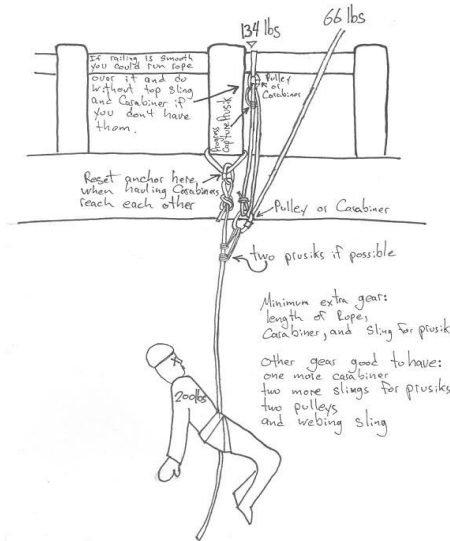 134 lbs
66 lbs
If railing is smooth
you could run rope
over it and do
without top sling
and Carabiner if
you don't have
them.
Pulley
or
Carabiner
Progress
Capture Prusik
Reset anchor here,
when hauling Carabiners
reach each other
Pulley or Carabiner
two prusiks if possible
Minimum extra gear:
length of Rope,
Carabiner, and Sling for prusik
Other gear good to have:
one more carabiner
two more slings for prusiks
two pulleys
and webing sling
200lbs